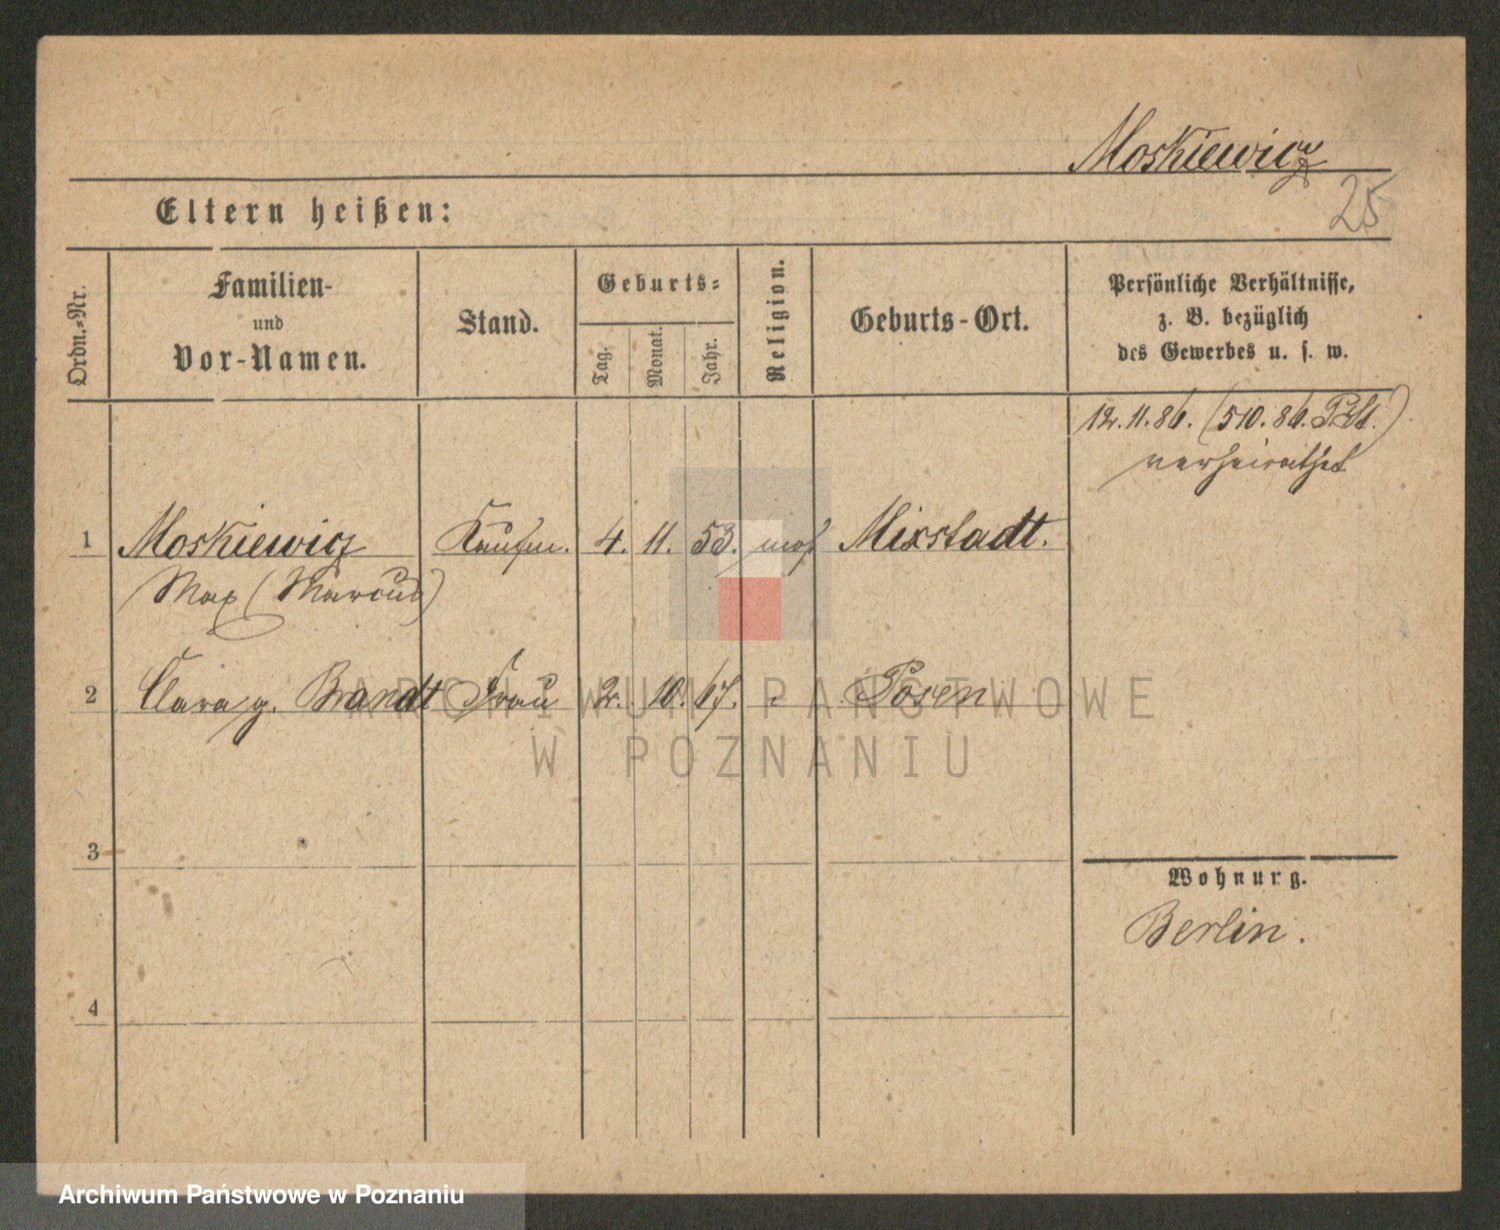 Moskiewicz
25
Eltern heißen:
Ordn.-Nr.
Familien-
und
Vor-Namen.
Stand.
Geburts-
Tag.
Monat.
Jahr.
Religion.
Geburts-Ort.
Persönliche Verhältnisse,
z. B. bezüglich
des Gewerbes u. s. w.
12.11.86. (510.86. )
verheirathet
1 Moskiewicz Kaufm. 4. 11. 53. mos Mixstadt.
Max (Marcus)
2 Clara g. Brandt Frau 2. 10. 67. Posen
3
4
Wohnung.
Berlin.
ARCHIWUM PAŃSTWOWE
W POZNANIU
Archiwum Państwowe w Poznaniu